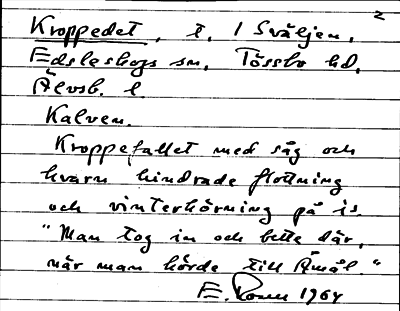 2
Kroppedet, t. i Sväljen,
Edsleskogs sn, Tössbo hd,
Älvsb. l.
Kalven.
Kroppefallet med såg och
kvarn hindrade flottning
och vinterkörning på is.
"Man tog in och bette där,
när man körde till Åmål."
E. 1964